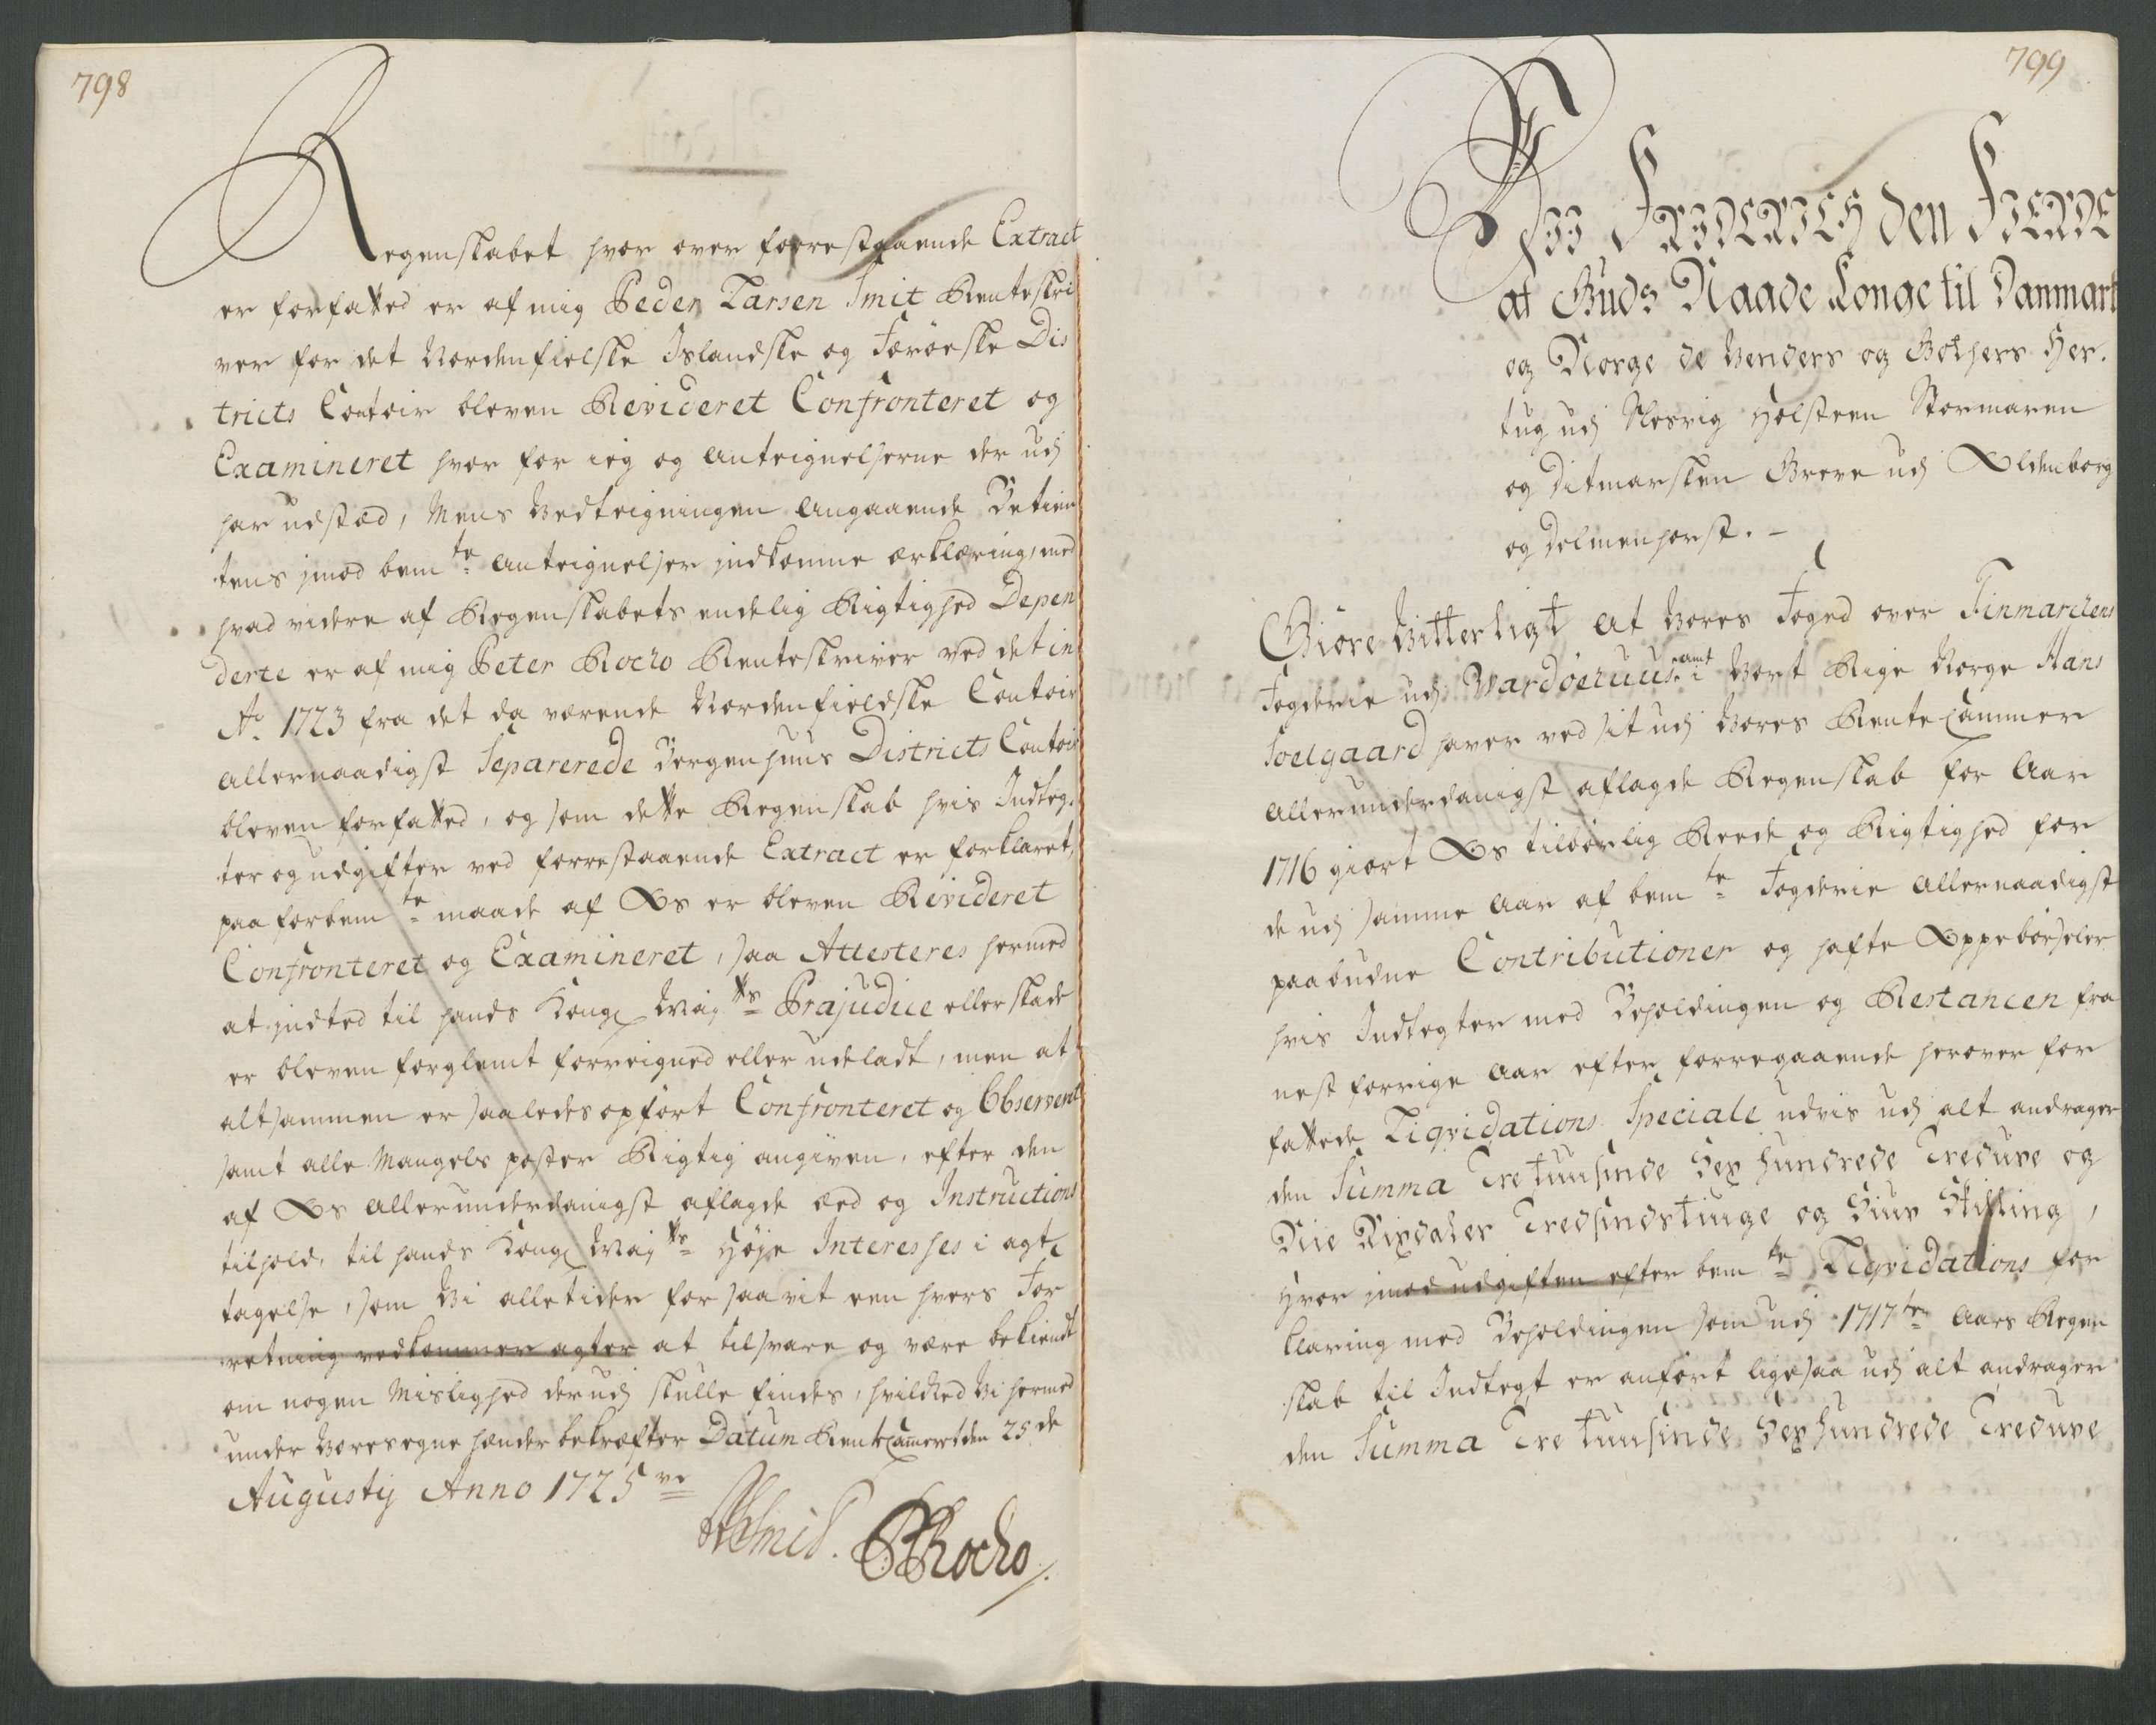 798
Regenskabet hvor over forrestaaende Extract
er forfatted er af mig Peder Larsen Smit Renteskri
ver for det Nordenfielske Islandske og Færöeske Dis
tricts Contoir bleven Revideret Confronteret og
Examineret hvor for ieg og Anteignelserne der udj
har udstæd, Mens Vedteigningen Angaaende Betien
tens jmod bemte Anteignelser indkomne erklæring, med
hvad videre af Regenskabets endelig Rigtighed Depen
derte er af mig Peter Rocho Renteskriver ved det in
Ao 1723 fra det da værende Nordenfieldske Contoir
Allernaadigst Separerede Bergenhuus Districts Contoir
bleven forfatted, og som dette Regenskab hvis Indteg-
ter og udgifter ved forrestaaende Extract er forklaret,
paa forbemte maade af Os er bleven Revideret
Confronteret og Examineret, saa Attesteres hermed
at indted til hands Kongl Mayts Præjudice eller skade
er bleven forglemt forreigned eller udeladt, men at
altsammen er saaledes opfört Confronteret og Observent
samt alle Mangels poster Rigtig angiven, efter den
af Os Allerunderdanigst aflagde eed og Instructions
tilhold, til hands Kongl Mayts Höye Interesses i agt-
tagelse, som Vi alletider for saavit een hvers For
retning vedkommer agter at tilsvare og være bekiendt
om nogen Mislighed derudj skulle findes, hvilcked Vi hermed
under Voresegne hænder bekræfter Datum RenteCammert den 25de
Augustij Anno 1725ve
PLSmid. PRocho/.
799
Wii Friderich den Fierde
af Guds Naade Konge til Danmark
og Norge de Venders og Gothers Her-
tug udj Slesvig Holsteen Stormaren
og Ditmarsken Greve udj Oldenborg
og Delmenhorst. -
Giöre Vitterligt At Vores Foged over Finmarckens
Fogderie udj Wardöehuus amt i Vort Rige Norge Hans
Soelgaard haver ved sit udj Vores RenteCammer
Allerunderdanigst aflagde Regenskab for Aar
1716 giort Os tilbörlig Reede og Rigtighed for
de udj samme Aar af bemte Fogderie Allernaadigst
paabudne Contributioner og hafte Oppebörseler
hvis Indtegter med Beholdingen og Restancen fra
nest forrige Aar efter forregaaende herover for
fattede Liqvidations Speciale udvis udj alt andrager
den Summa Tre tuusinde Sex hundrede Tredive og
Nie Rixdaler Tredsindstiuge og Siuv Skilling,
Hvor jmod udgiften efter bemte Liqvidations for
klaring med Beholdingen som udj 1717te Aars Regen
skab til Indtegt er anfört ligesaa udj alt andrager
den Summa Tre tuusinde Sexhundrede Tredive